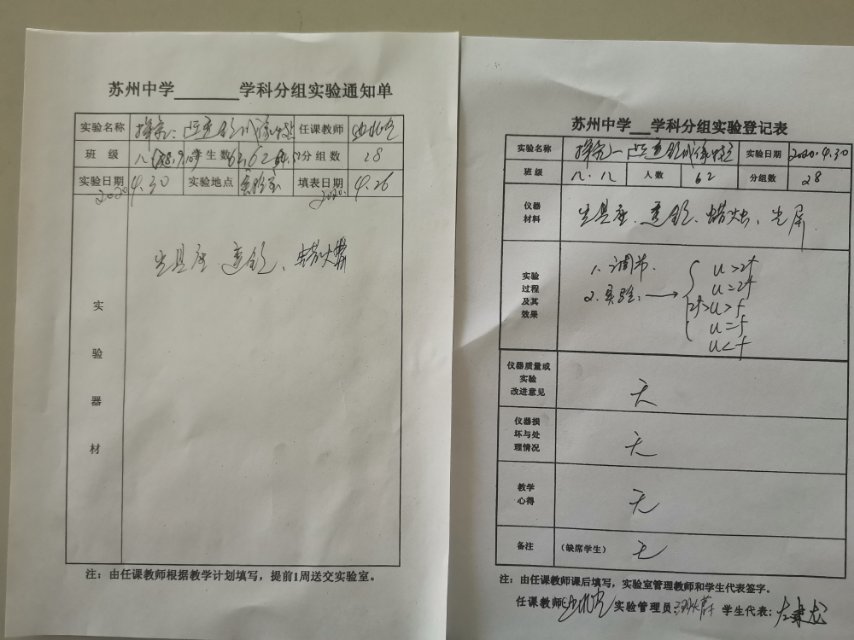 苏州中学______学科分组实验通知单
实验名称 探究:凸透镜成像特点 任课教师
班 级 学生数 62 分组数 28
实验日期 2020.4.30 实验地点 实验室 填表日期 2020.4.26
实验器材
光具座 透镜、蜡烛
注：由任课教师根据教学计划填写，提前1周送交实验室。
苏州中学___学科分组实验登记表
实验名称 探究:凸透镜成像特点 实验日期 2020.4.30
班 级 八.八 人数 62 分组数 28
仪器材料 光具座、透镜、蜡烛、光屏
实验过程及其效果
1.调节.
2.实验:
u>2f
u=2f
2f>u>f
u=f
u<f
仪器质量或实验改进意见 无
仪器损坏与处理情况 无
教学心得 无
备注 (缺席学生) 无
注：由任课教师课后填写，实验室管理教师和学生代表签字。
任课教师 实验管理员 学生代表: